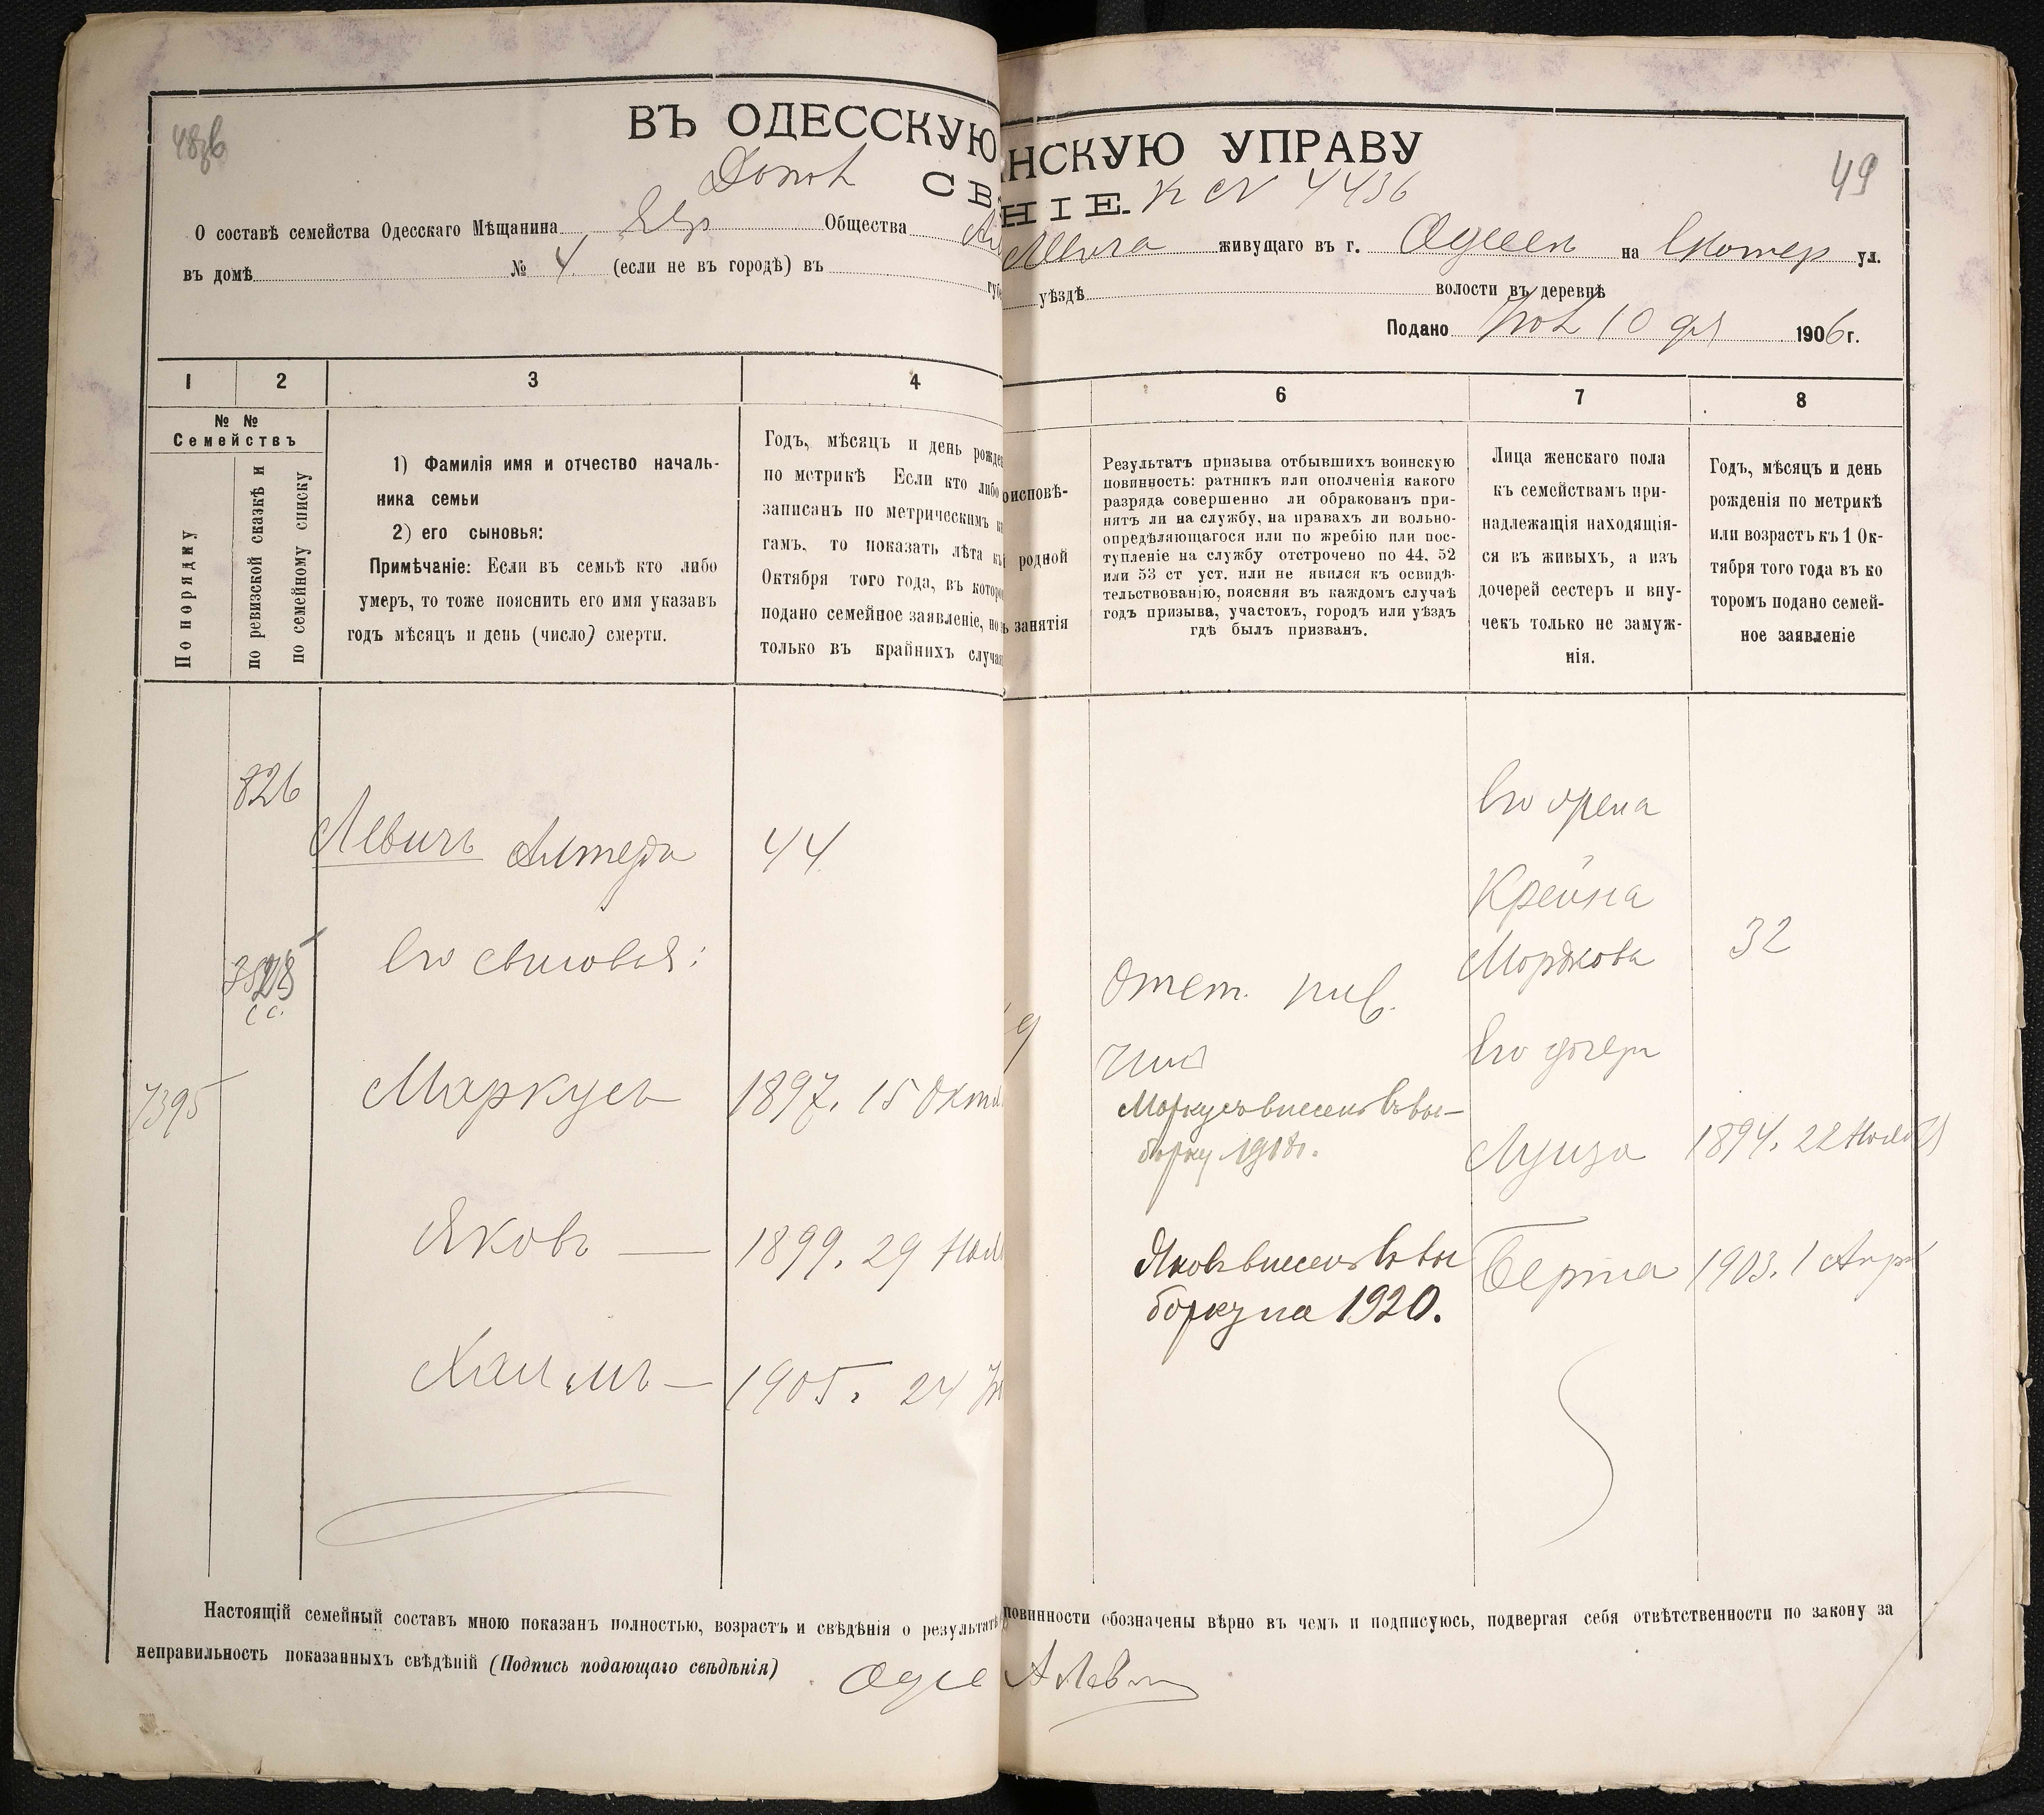 48об
49
ВЪ ОДЕССКУЮ НСКУЮ УПРАВУ
СВ НІЕ. к № 4436
О составѣ семейства Одесскаго Мѣщанина Евр Общества Левича живущаго въ г. Одессѣ на ул.
въ домѣ № 4 (если не въ городѣ) въ губ уѣздѣ волости въ деревнѣ
Подано 10 дня 1906 г.
1 2 3 4 6 7 8
№ №
Семействъ
По порядку
по ревизской сказкѣ и
по семейному списку
1) Фамилія имя и отчество началь-
ника семьи
2) его сыновья:
Примѣчаніе: Если въ семьѣ кто либо
умеръ, то тоже пояснить его имя указавъ
годъ мѣсяцъ и день (число) смерти.
Годъ, мѣсяцъ и день рожде
по метрикѣ Если кто либо
записанъ по метрическимъ к
гамъ, то показать лѣта къ
Октября того года, въ котор
подано семейное заявленіе, но
только въ крайнихъ случа
оисповѣ-
родной
ь занятія
Результатъ призыва отбывшихъ воинскую
повинность: ратникъ или ополченія какого
разряда совершенно ли обракованъ при-
нятъ ли на службу, на правахъ ли вольно-
опредѣляющагося или по жребію или пос-
тупленіе на службу отстрочено по 44, 52
или 53 ст уст. или не явился къ освидѣ-
тельствованію, поясняя въ каждомъ случаѣ
годъ призыва, участокъ, городъ или уѣздъ
гдѣ былъ призванъ.
Лица женскаго пола
къ семействамъ при-
надлежащія находящія-
ся въ живыхъ, а изъ
дочерей сестеръ и вну-
чекъ только не замуж-
нія.
Годъ, мѣсяцъ и день
рожденія по метрикѣ
или возрастъ къ 1 Ок-
тября того года въ ко
торомъ подано семей-
ное заявленіе
826
Левичъ Алтеръ 44
Его сыновья:
с с.
7395
Маркусъ 1897. 15 Октя
Яковъ — 1899. 29 Ноя
Хаимъ — 1905. 24
Маркусъ внесенъ въ вы-
борку 1918г.
Яковъ внесенъ въ вы
борку на 1920.
Его жена
Крейна
Мордкова 32
Его дочери
Луиза 1894. 22 Ноября
Берта 1903. 1 Апр
Настоящій семейный составъ мною показанъ полностью, возрастъ и свѣдѣнія о результатѣ повинности обозначены вѣрно въ чемъ и подписуюсь, подвергая себя отвѣтственности по закону за
неправильность показанныхъ свѣдѣній (Подпись подающаго свѣдѣнія) Одес А Левич